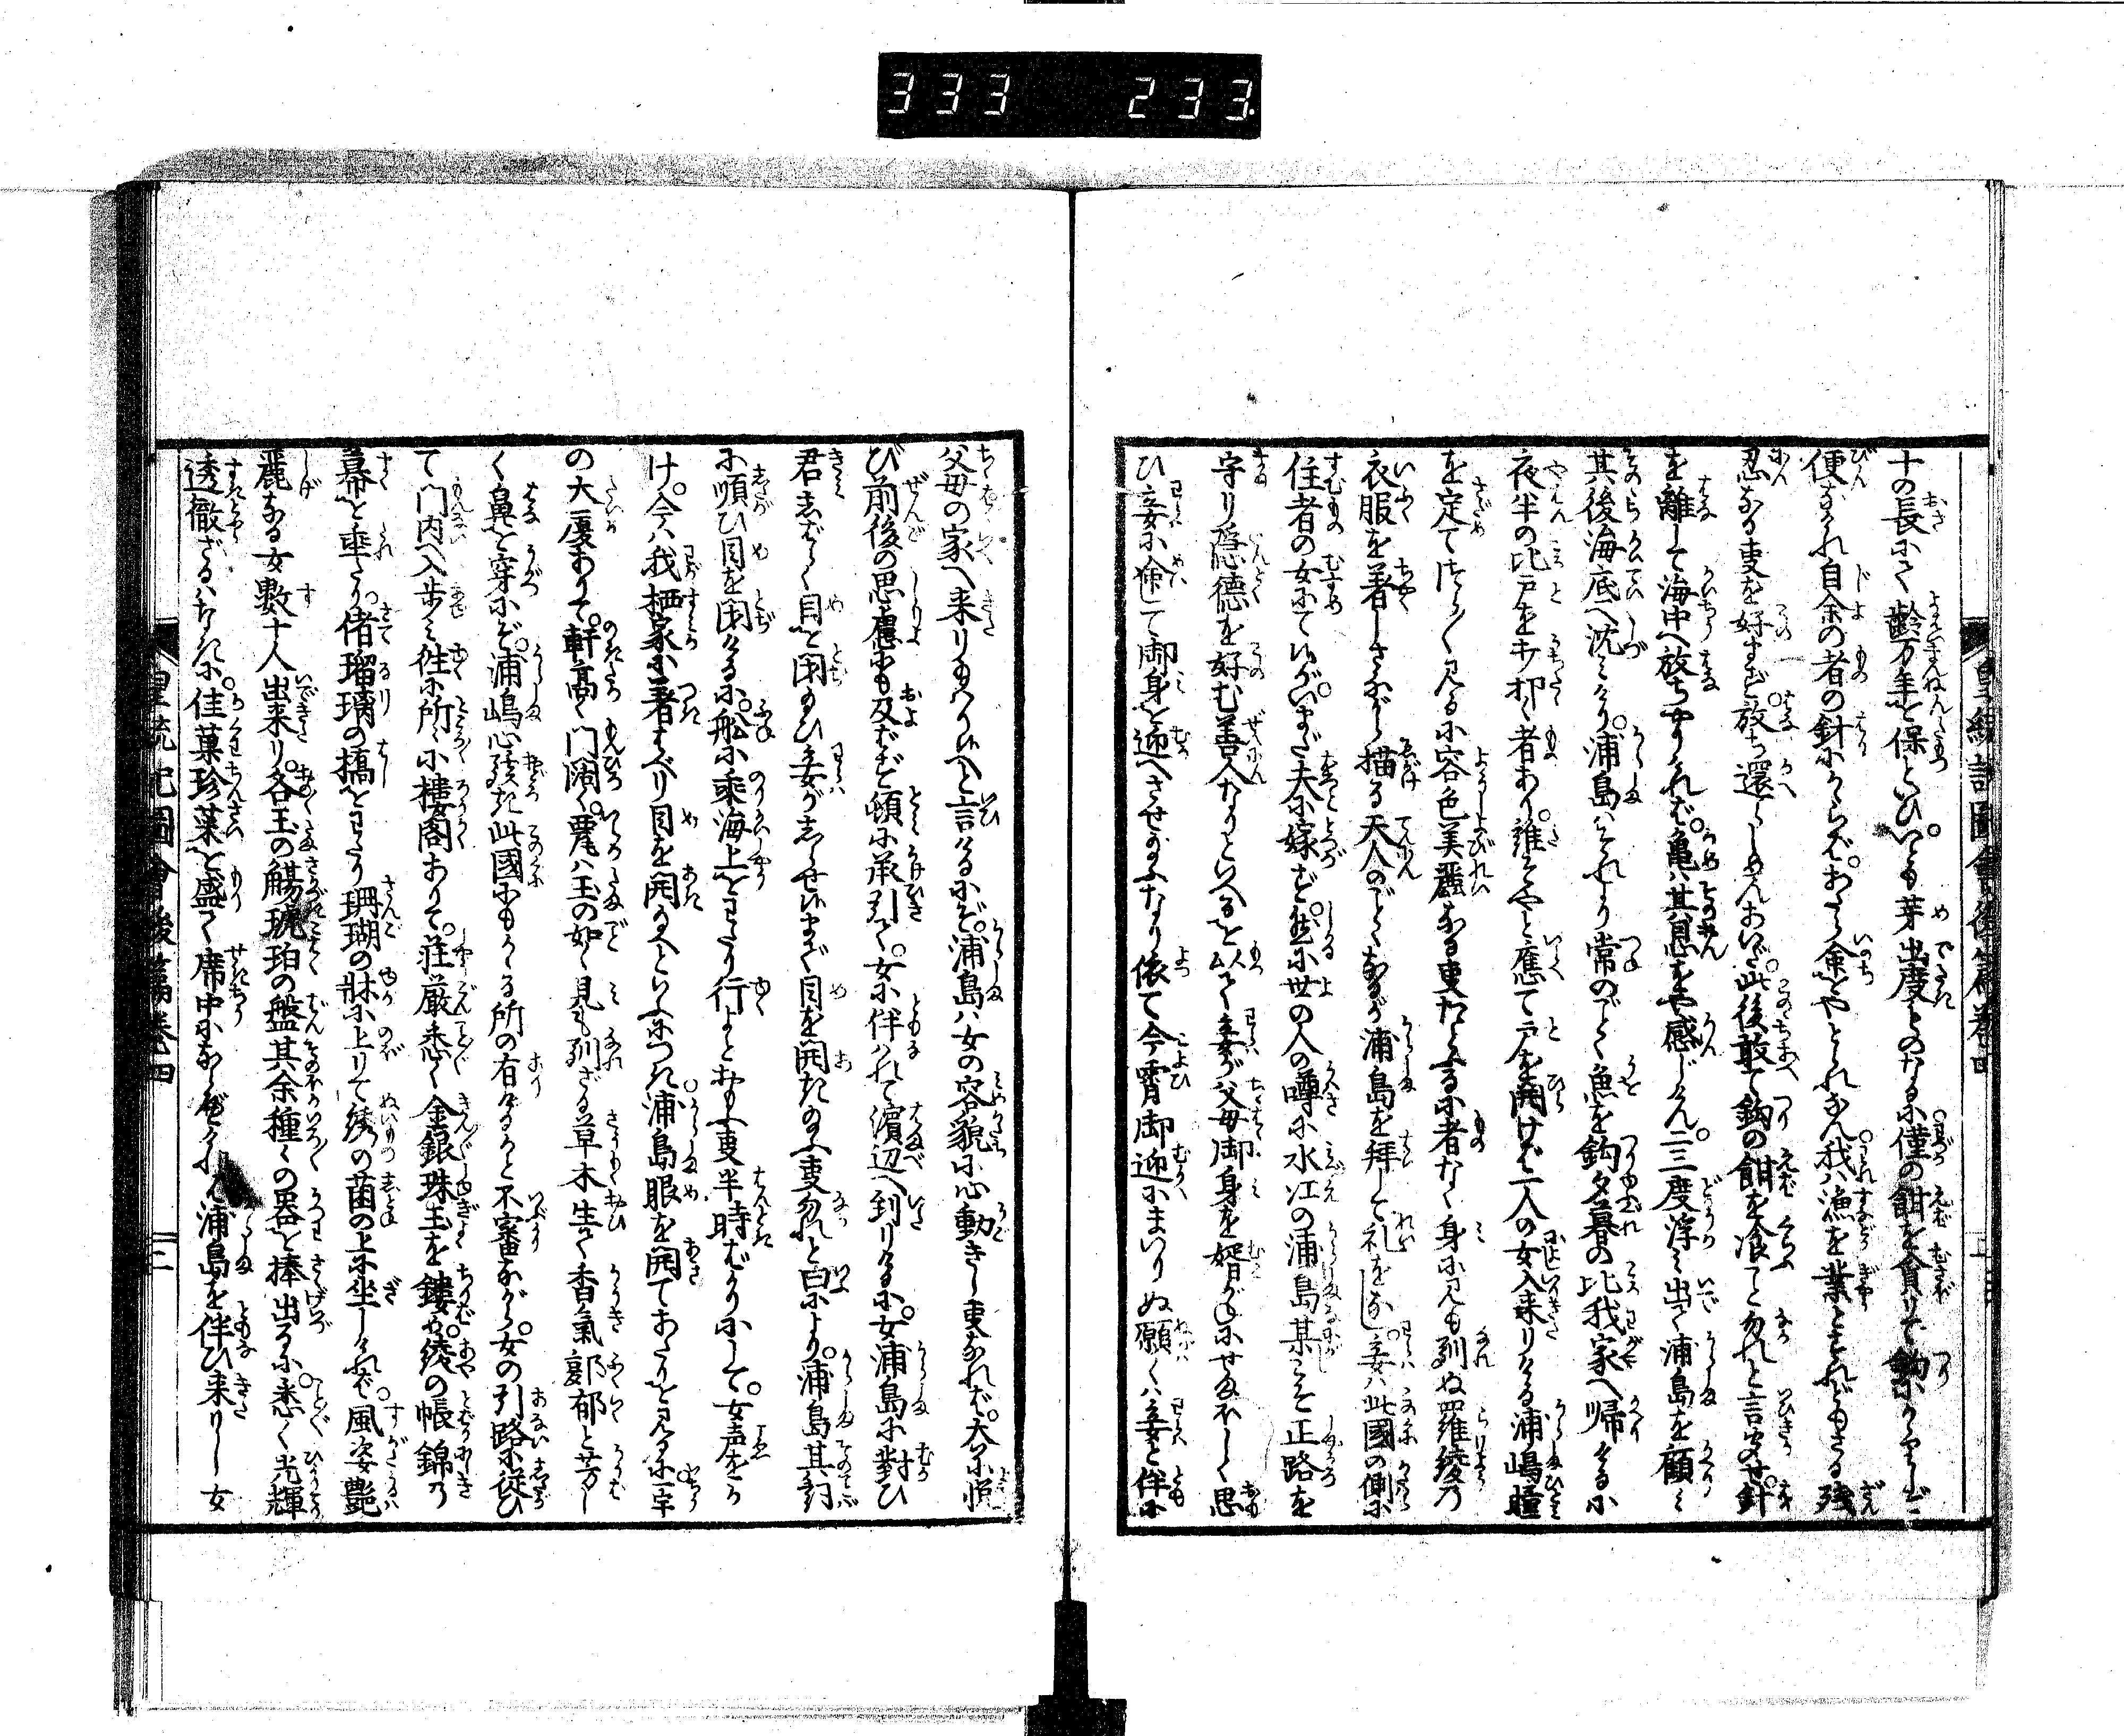 333 233
十の長にて齢万年を保といひいとも芽出度ものなるに僅の餌を貪りて鈎にかゝりしぞ
便なけれ自余の者の針にかゝらばあたら命をやとられなん我は漁を業とすれどもさる残
忍なる事を好まず放ち還しめんおいだ此後敢て鈎の餌を喰ことなかれと言きかせ針
を離して海中へ放ちやりければ亀は其恩をや感じけん二三度浮み出て浦島を顧み
其後海底へ沈みけり浦島はそれより常のごとく魚を釣夕暮の比我家へ帰りけるに
夜半の比戸を打叩く者あり誰そやと應て戸を開けば一人の女入来りける浦嶋瞳
を定てつら〱見るに容色美麗なる事たとふるに者なく身に見も馴ぬ羅綾の
衣服を着しさながら描る天人のごとくなるが浦島を拝して礼をなし妾は此國の側に
住者の女にて候がいまだ夫に嫁ず然に世の人の噂に水江の浦島某こそ正路を
守り隠徳を好む善人なりといへるを以て妾が父母御身を婿がねにせまほしく思
ひ妾に命じて御身を迎へさせ給ふなり依て今宵御迎にまいりぬ願くは妾と伴に
皇統記圖會後篇巻四
父母の家へ来りたまひ候へと言けるにぞ浦島は女の容貌に心動きし事なれば大に悦
び前後の思慮にも及ばず頓に承引て女に伴はれて濱辺へ到りけるに女浦島に對ひ
君しばらく目を閉給ひ妾がしらせ候まで目を開き給ふ事勿れと白により浦島其詞
に順ひ目を閉けるに舩に乘海上をわたり行よとおもふ事半時ばかりにして女声をか
け今は我栖家に著はべり目を開給へといふにつれ浦島眼を開てあたりを見るに一宇
の大厦ありて軒高く門濶く甍は玉の如く見も馴ざる草木生て香氣郁郁と芳し
く鼻を穿にぞ浦嶋心驚き此國にもかゝる所の有けるかと不審ながら女の引路に従ひ
て門内へ入歩み往に所々に樓閣ありて荘厳悉く金銀珠玉を鏤め綾の帳錦の
幕を垂たり偖瑠璃の橋をわたり珊瑚の牀に上りて綉の茵の上に坐しければ風姿艶
麗なる女數十人出来り各玉の觴琥珀の盤其余種〻の器を捧出るに悉く光輝
透徹ざるはなきに佳菓珍菜を盛て席中にならべければ浦島を伴ひ来りし女
皇統記圖會後篇巻四
二